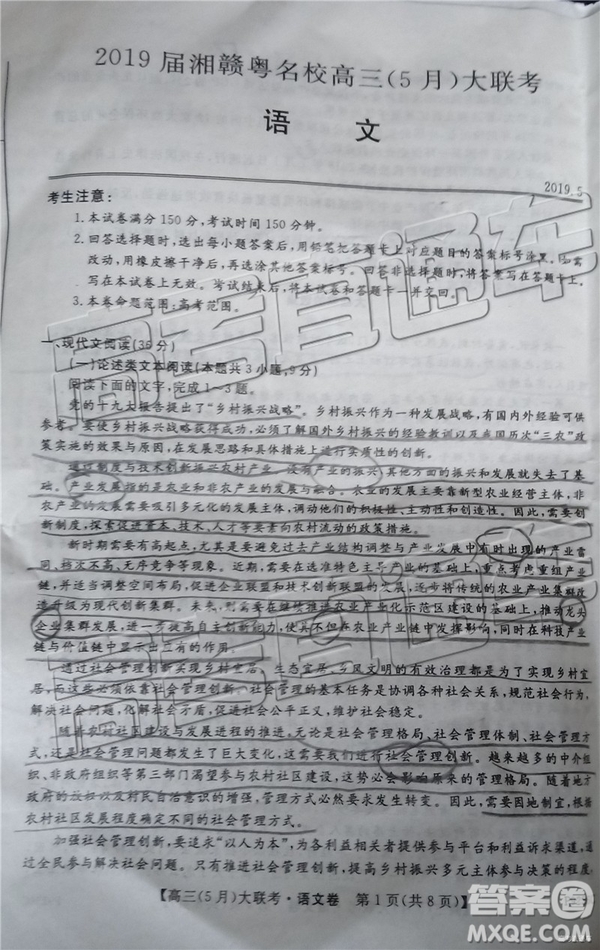 2019届湘赣粤名校高三(5月)大联考
语 文
2019.5
考生注意:
1.本试卷满分150分,考试时间150分钟。
2.回答选择题时,选出每小题答案后,用铅笔把答题卡上对应题目的答案标号涂黑,如需
改动,用橡皮擦干净后,再选涂其他答案标号。回答非选择题时,将答案写在答题卡上,
写在本试卷上无效。考试结束后,将本试卷和答题卡一并交回。
3.本卷命题范围:高考范围。
一、现代文阅读(36分)
(一)论述类文本阅读(本题共3小题,9分)
阅读下面的文字,完成1~3题。
党的十九大报告提出了“乡村振兴战略”。乡村振兴作为一种发展战略,有国内外经验可供
参考。要使乡村振兴战略获得成功,必须了解国外乡村振兴的经验教训以及我国历次“三农”政
策实施的效果与原因,在发展思路和具体措施上进行实质性的创新。
通过制度与技术创新振兴农村产业。没有产业的振兴,其他方面的振兴和发展就失去了基
础。产业发展指的是农业和非农产业的发展与融合。农业的发展主要靠新型农业经营主体,非
农产业的发展需要吸引多元化的发展主体,调动他们的积极性、主动性和创造性。因此,需要创
新制度,探索促进资本、技术、人才等要素向农村流动的政策措施。
新时期需要有高起点,尤其是要避免过去产业结构调整与产业发展中有时出现的产业雷
同、档次不高、无序竞争等现象。近期,需要在选准特色主导产业的基础上,重点考虑重组产业
链,并适当调整空间布局,促进企业联盟和技术创新联盟的发展,逐步将传统的农业产业集群改
造升级为现代创新集群。未来,则需要在继续推动农业产业化示范区建设的基础上,推动龙头
企业集群发展,并促进提高自主创新能力,使其不但在农业产业链中发挥影响,同时在科技产业
链与价值链中显示出三有的作用。
通过社会管理创新实现乡村宜居。生态宜居和乡风文明的有效治理都是为了实现乡村宜
居,而这些必须依靠社会管理创新。社会管理的基本任务是协调各种社会关系,规范社会行为,
解决社会问题,化解社会矛盾,促进社会公平正义,维护社会稳定。
随着农村社区建设与发展进程的推进,无论是社会管理格局、社会管理体制、社会管理方
式,还是社会管理问题都发生了巨大变化,这需要我们进行社会管理创新。越来越多的中介组
织、非政府组织等第三部门渴望参与农村社区建设,这势必会影响原来的管理格局。随着地方
政府的放权以及村民自治意识的增强,管理方式必然要求发生转变。因此,需要因地制宜,根据
农村社区发展程度确定不同的社会管理方式。
加强社会管理创新,要追求“以人为本”,为各利益相关者提供参与平台和利益诉求渠道,通
过全民参与解决社会问题。只有推进社会管理创新,提高乡村振兴多元主体参与发展的程度,
【高三(5月)大联考·语文卷 第1页(共8页)】
高考直通车
答案圈
MXQE.COM